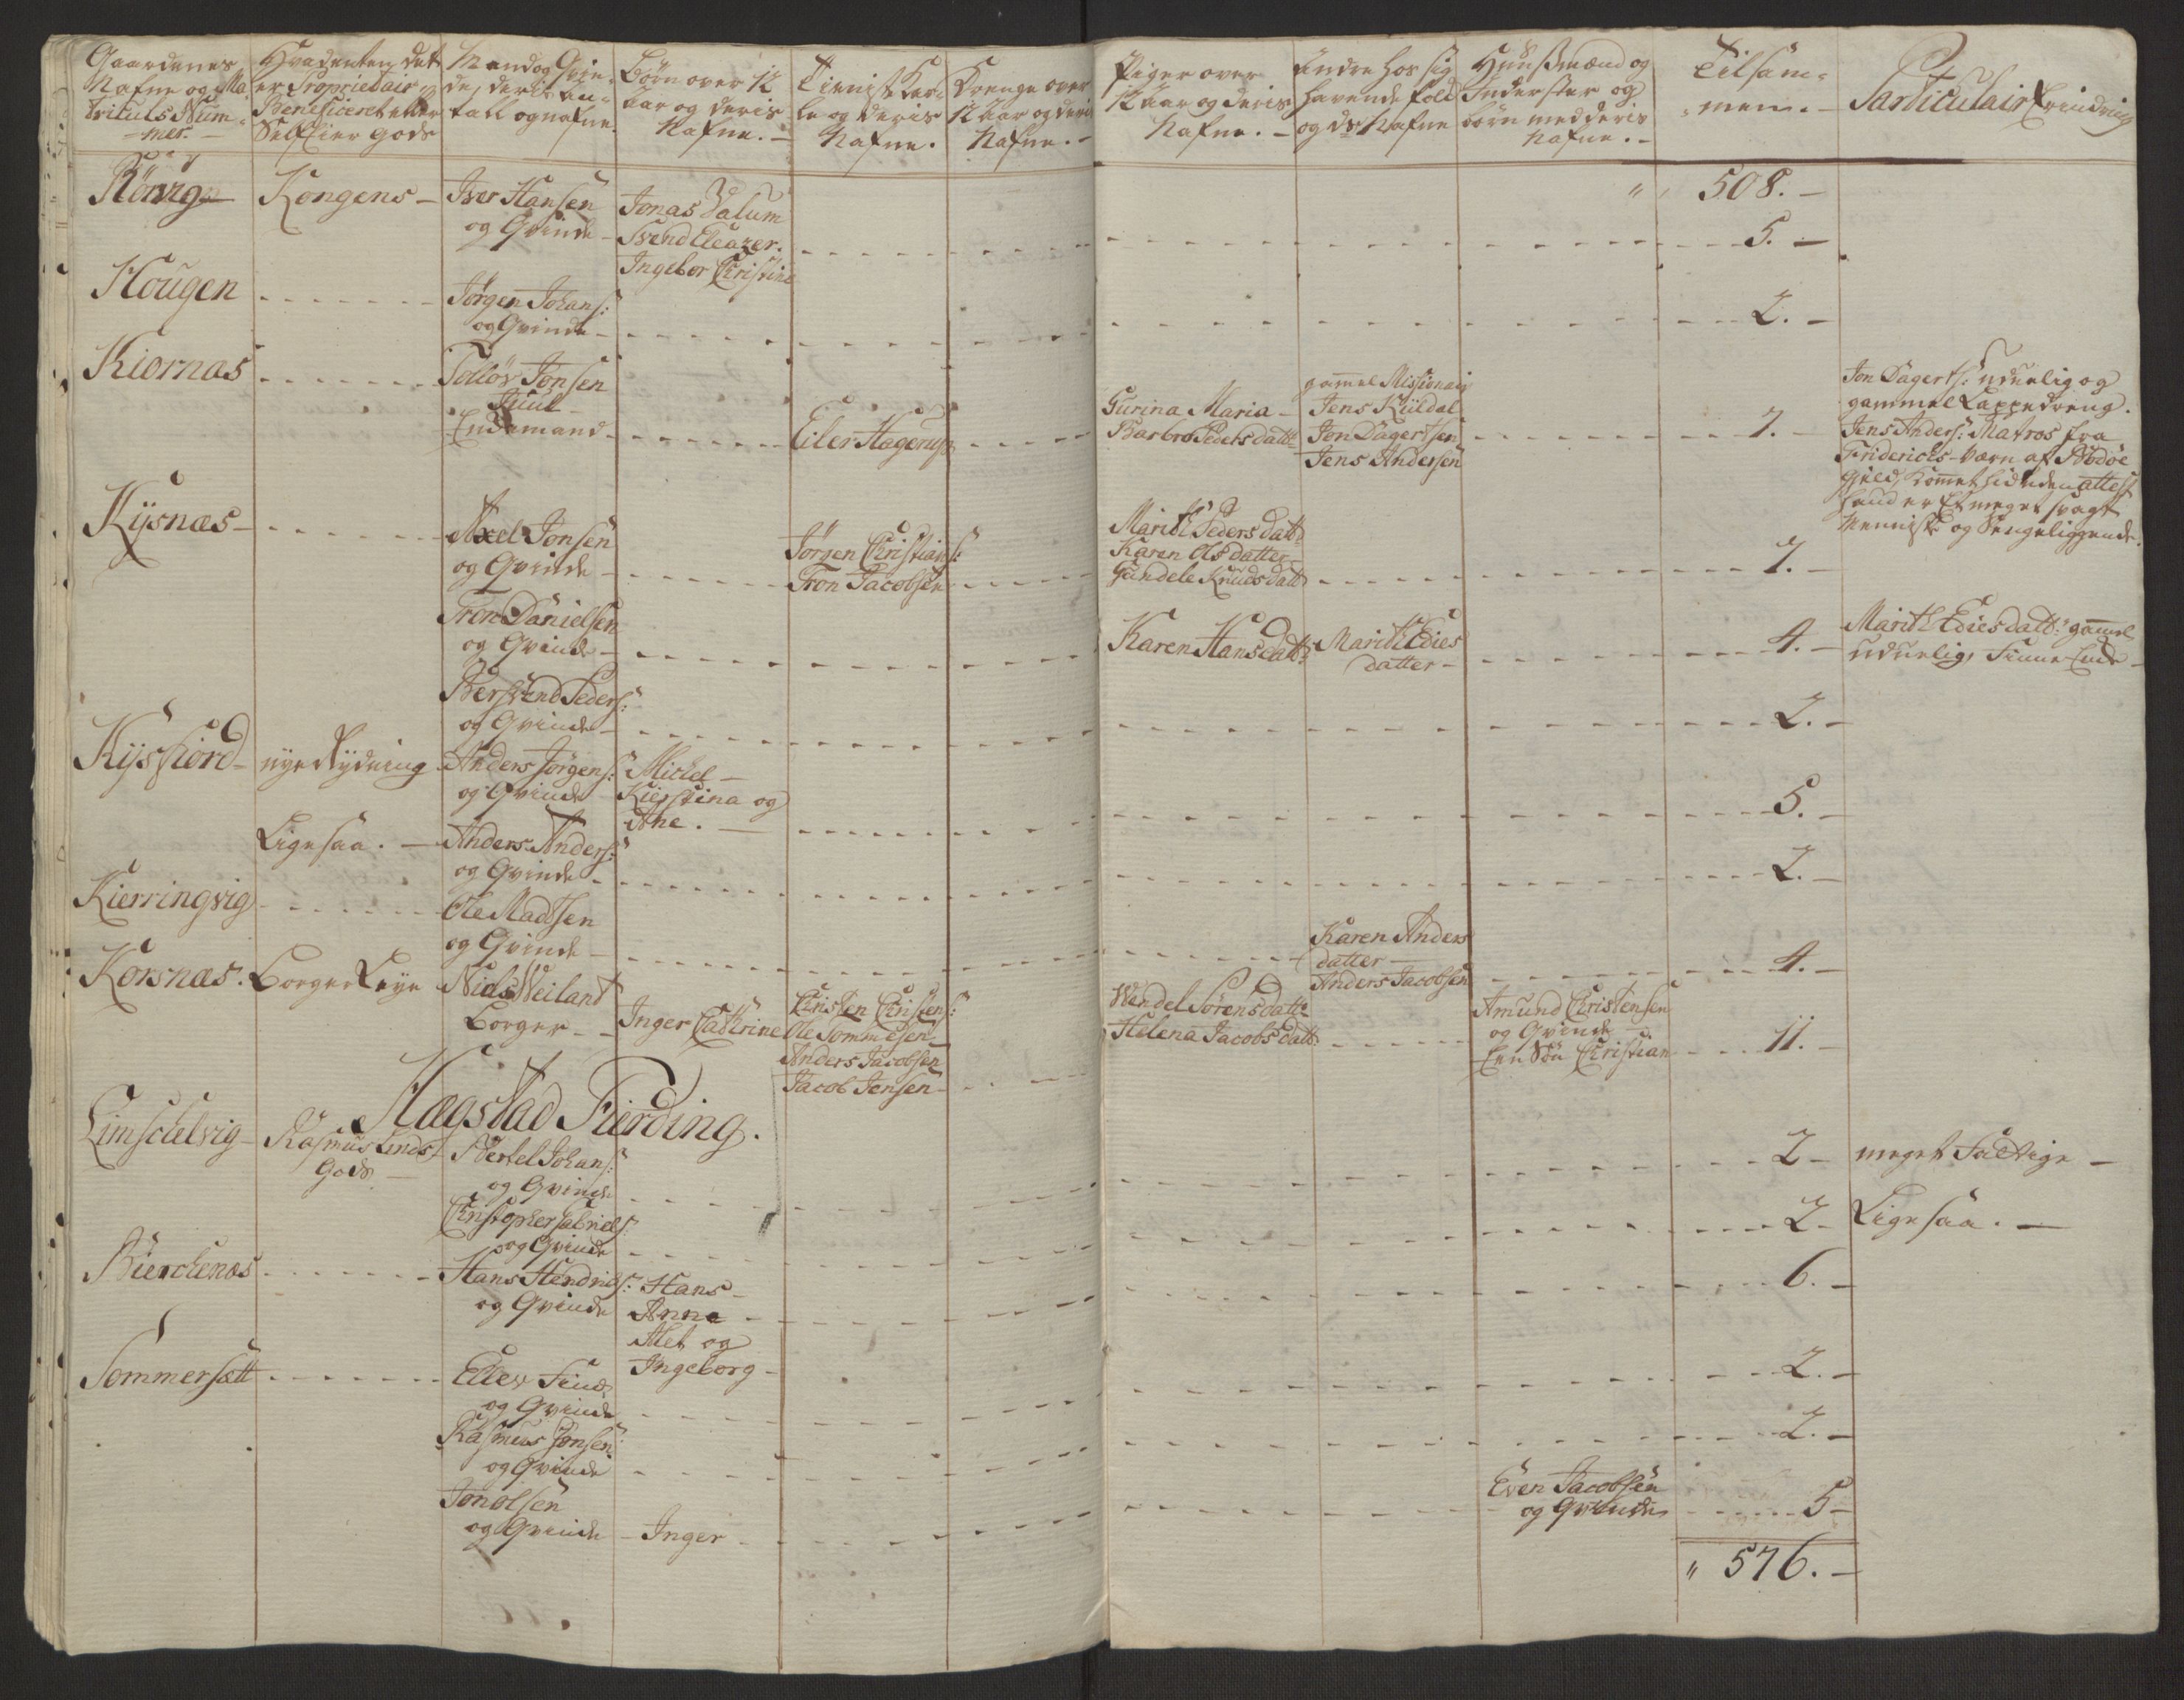 Gaardenes
Nafne og Ma-
triculs Num-
mer. —
Hvadenten det
er Proprietair
Beneficeret eller
Selfeier Gods
Mand og Qvin-
de, deris An-
tall og nafne.
Börn over 12
Aar og deris
Nafne. —
Tieniste Kar-
le og deris
Nafne.
Drenge over
12 Aar og deris
Nafne. —
Piger over
12 Aar og deris
Nafne. —
Andre hos sig
havende folk
og ds Nafne
Huusmænd og
Inderster og
börn med deris
Nafne. —
Tilsam-
men. —
Particulair Erindring
Rönvig
Kongens —
Iver Hansen
og Qvinde —
Jonas Dalum
Svend Eleazer.
Ingebor Christine
" 508. —
5. —
Hougen
Jörgen Johans:
og Qvinde —
2. —
Kiornæs
Tollöv Jonsen
Juul
Enkemand
Eiler Hagerup
Gurina Maria —
Barbro Peders datt:
gammel Missionair
Jens Kuldal
Jon Dagertsen
Jens Andersen
7. —
Jon Dagerts: uduelig og
gammel Lappedreng.
Jens Anders: Matros fra
Fridericks-Værn af Bodöe
Gield, kommet hid uden attest
hand er Et meget svagt
Menniske og Sengeliggende.
Kysnæs —
Axel Jonsen
og Qvinde —
Jörgen Christians:
Tron Jacobsen
Marith Peders datt:
Karen Ols datter —
Gundele Knuds datt
7. —
Tron Danielsen
og Qvinde —
Karen Hans datt:
Marith Edies
datter —
4. —
Marith Edies datt: gammel
uduelig Finne Enke —
Bersvend Peders:
og Qvinde —
2. —
Kysfiord —
nye Rydning
Anders Jörgens:
og Qvinde
Michel —
Kierstina og
Ane. —
5. —
Ligesaa. —
Anders Anders:
og Qvinde —
2. —
Kierringvig
Ole Madsen
og Qvinde —
Karen Anders
datter —
Anders Jacobsen
4. —
Korsnæs.
Borger Leye
Niels Weiland
Borger —
Inger Cathrine
Christen Christens:
Ole Sommesen
Anders Jacobsen
Jacob Jensen —
Wendel Sörens datt:
Helena Jacobs datt
Amund Christensen
og Qvinde —
Een Sön Christian
11. —
Hægstad Fierding.
Limschelvig —
Rasmus Linds
Gods —
Bertel Johans:
og Qvinde
2 —
meget Fattige —
Christopher Gabriels:
og Qvinde
2 —
Ligesaa. —
Bierckenæs
Hans Hendrichs:
og Qvinde
Hans —
Anna —
Alet og
Ingeborg —
6. —
Sommersætt
Ellev Finds
og Qvinde
2. —
Rasmus Jonsen
og Qvinde
2. —
Jon Olsen
og Qvinde
— Inger
Even Jacobsen
og Qvinde
5 —
" 576. —